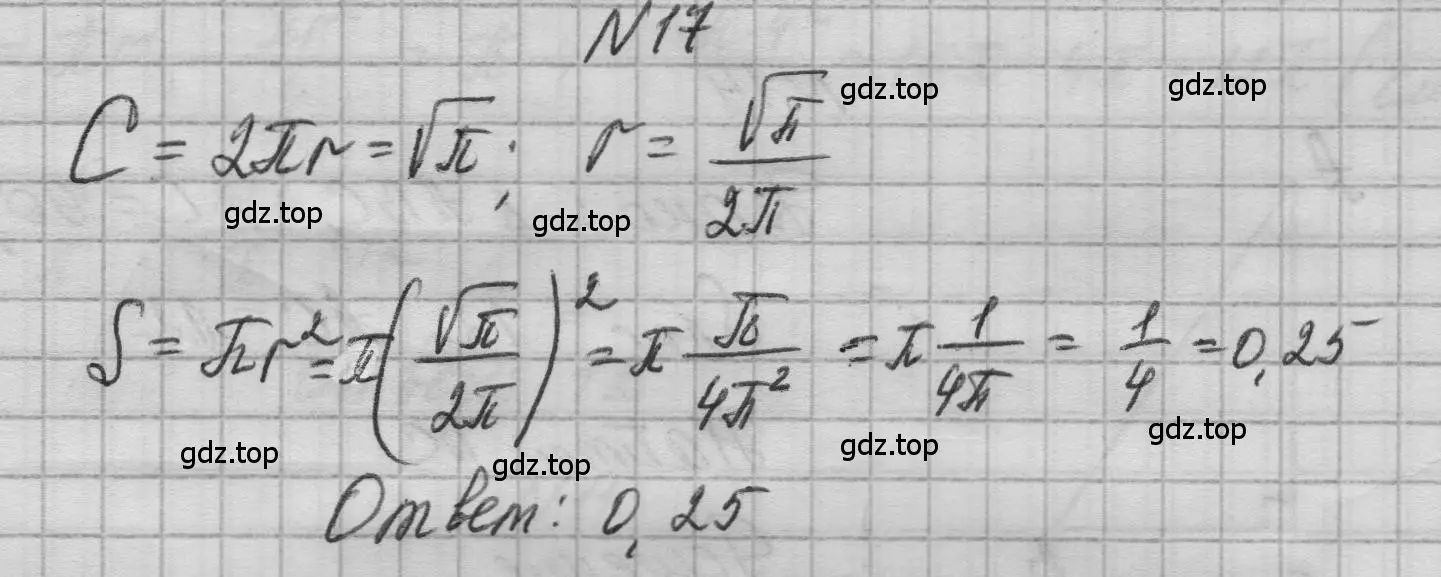 N 17
gdz.top gdz.top
C = 2πr = √π; r = √π / 2π
gdz.top gdz.top
S = πr² = π(√π / 2π)² = π π / 4π² = π 1 / 4π = 1 / 4 = 0,25
gdz.top gdz.top gdz.top gdz.top
Ответ: 0,25